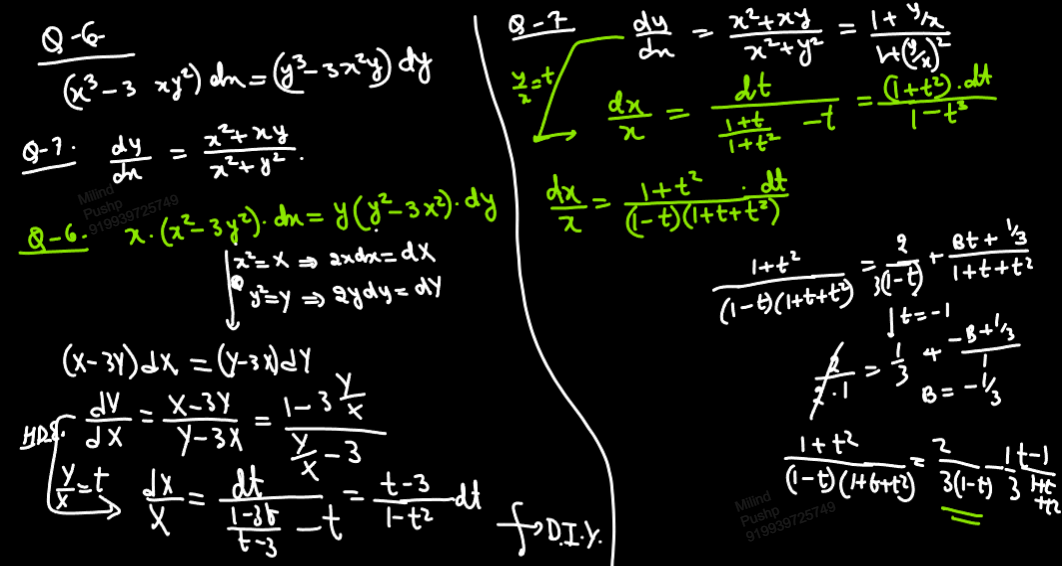 Q-6
(x³-3 xy²) dx = (y³-3x²y) dy
Q-7. dy/dx = x²+xy / x²+y².
Milind
Pushp
919939725749
Q-6. x.(x²-3y²).dx = y(y²-3x²).dy
x²=X ⇒ 2xdx=dX
y²=Y ⇒ 2ydy=dY
(X-3Y)dX = (Y-3X)dY
H.D.E. dY/dX = X-3Y / Y-3X = 1-3 Y/X / Y/X - 3
Y/X = t → dX/X = dt / (1-3t / t-3 - t) = t-3 / 1-t² dt
→ D.I.Y.
Q-7 dy/dx = x²+xy / x²+y² = 1+y/x / 1+(y/x)²
y/x = t
dx/x = dt / (1+t / 1+t² - t) = (1+t²).dt / 1-t³
dx/x = 1+t² / (1-t)(1+t+t²) . dt
1+t² / (1-t)(1+t+t²) = 2 / 3(1-t) + Bt+1/3 / 1+t+t²
t=-1
2 / 2.1 = 1/3 + -B+1/3 / 1
B = -1/3
1+t² / (1-t)(1+t+t²) = 2 / 3(1-t) - 1/3 t-1 / 1+t+t²
Milind
Pushp
919939725749